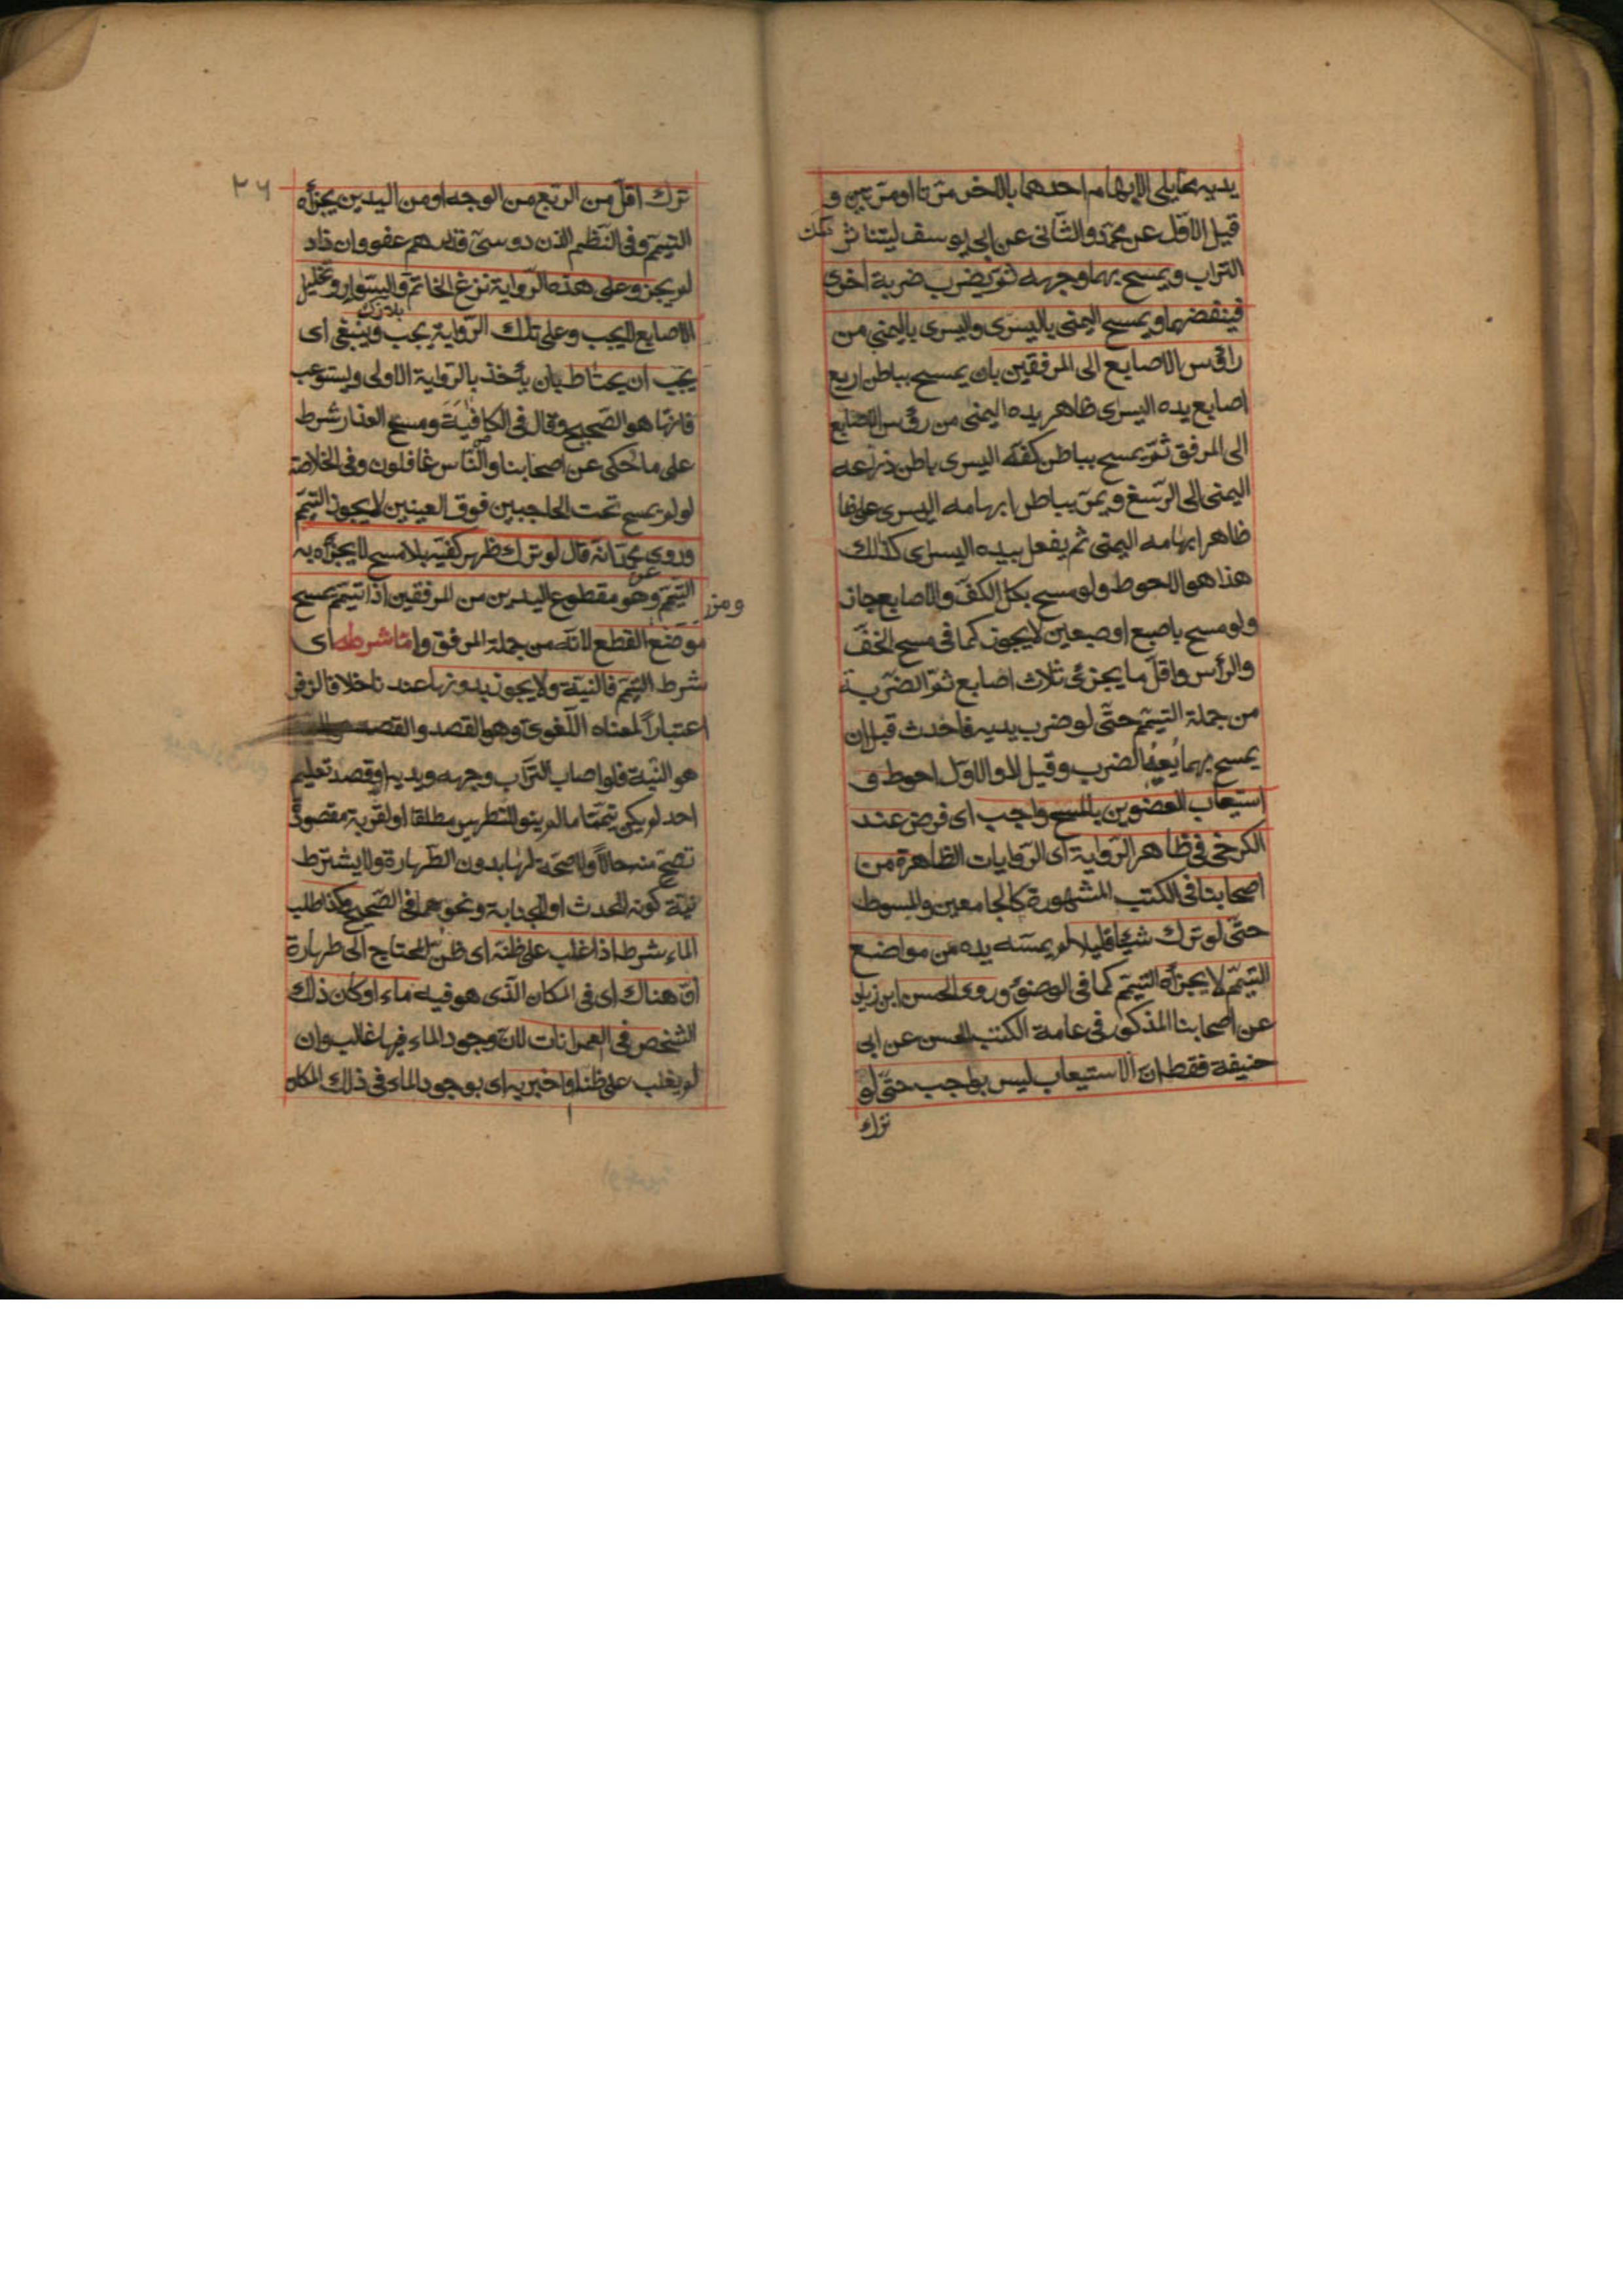 يديه مما يلى الابهام احدهما بالاخر مرّتا او مرّتين و
قيل الاوّل عن محمّد والثّانى عن ابى يوسف ليتناثر
التراب ويمسح بهما وجهه ثمّ يضرب ضربة اخرى
فينفضهما ويمسح اليمنى باليسرى واليسرى باليمنى من
راؤس الاصابع الى المرفقين بان يمسح بباطن اربع
اصابع يده اليسرى ظاهر يده اليمنى من رؤس الاصابع
الى المرفق ثمّ يمسح بباطن كفّه اليسرى باطن ذراعه
اليمنى الى الرّسغ ويمرّ بباطن ابهامه اليسرى على
ظاهر ابهامه اليمنى ثم يفعل بيده اليسرى كذلك
هذا هو الاحوط ولو مسح بكل الكفّ والاصابع جاز
ولو مسح باصبع او صبعين لا يجوز كما فى مسح الخفّ
والرأس واقلّ ما يجزئ ثلاث اصابع ثمّ الضّربة
من جملة التيمّم حتّى لو ضرب يديه فاحدث قبل ان
يمسح بهما يعيد الضرب وقيل لا والاوّل احوط و
استيعاب العضوين بالمسح واجب اى فرض عند
الكرخى فى ظاهر الرّواية اى الرّوايات الظاهرة من
اصحابنا فى الكتب المشهورة كالجامعين والمبسوط
حتّى لو ترك شيئا قليلا لم يمسّه يده من مواضع
التيمّم لا يجزأه التيمّم كما فى الوضوء وروى الحسن ابن زياد
عن اصحابنا المذكور فى عامة الكتب الحسن عن ابى
حنيفة فقط انّ الاستيعاب ليس بواجب حتّى لو
ترك
٢٦
ترك اقلّ من الرّبع من الوجه او من اليدين يجزأه
التيمّم وفى النّظم الذن دوسىّ قدرهم عفو وان زاد
لم يجز وعلى هذه الرّواية نزع الخاتم والسّوار وتخليل
الاصابع لا يجب وعلى تلك الرّواية يجب وينبغى اى
يجب ان يحتاط بان يأخذ بالرّواية الاولى ويستوعب
فانّها هو الصّحيح وقال فى الكافية ومسح العذار شرط
على ما حكى عن اصحابنا والنّاس غافلون وفى الخلاصة
لو لم يمسح تحت الحاجبين فوق العينين لا يجوز التيمّم
وروى محمد انّه قال لو ترك ظهر كفّيه بلا مسح لا يجزأه به
التيمّم وهو مقطوع اليدين من المرفقين اذا تيمّم يمسح
موضع القطع لانّه من جملة المرفق وامّا شرطه اى
شرط التيمّم فالنيّة ولا يجوز بدونها عندنا خلافا لزفر
اعتباراً لمعناه اللّغوىّ وهو القصد والقصد
هو النّية فلو اصاب التّراب وجهه ويديه او قصد تعليم
احد لم يكن تيمّما ما لم ينو التطهير مطلقا او لقربة مقصودة
تصحّ منه حالاً ولا صحّة لها بدون الطّهارة ولا يشترط
نيّة كونه للحدث او للجنابة ونحوهما فى الصّحيح وكذا طلب
الماء شرط اذا غلب على ظنّه اى ظنّ المحتاج الى طهارة
انّ هناك اى فى المكان الذّى هو فيه ماء او كان ذلك
الشّخص فى العمرانات لانّ وجود الماء فيها غالب وان
لم يغلب على ظنّه او اخبر به اى بوجود الماء فى ذلك المكان